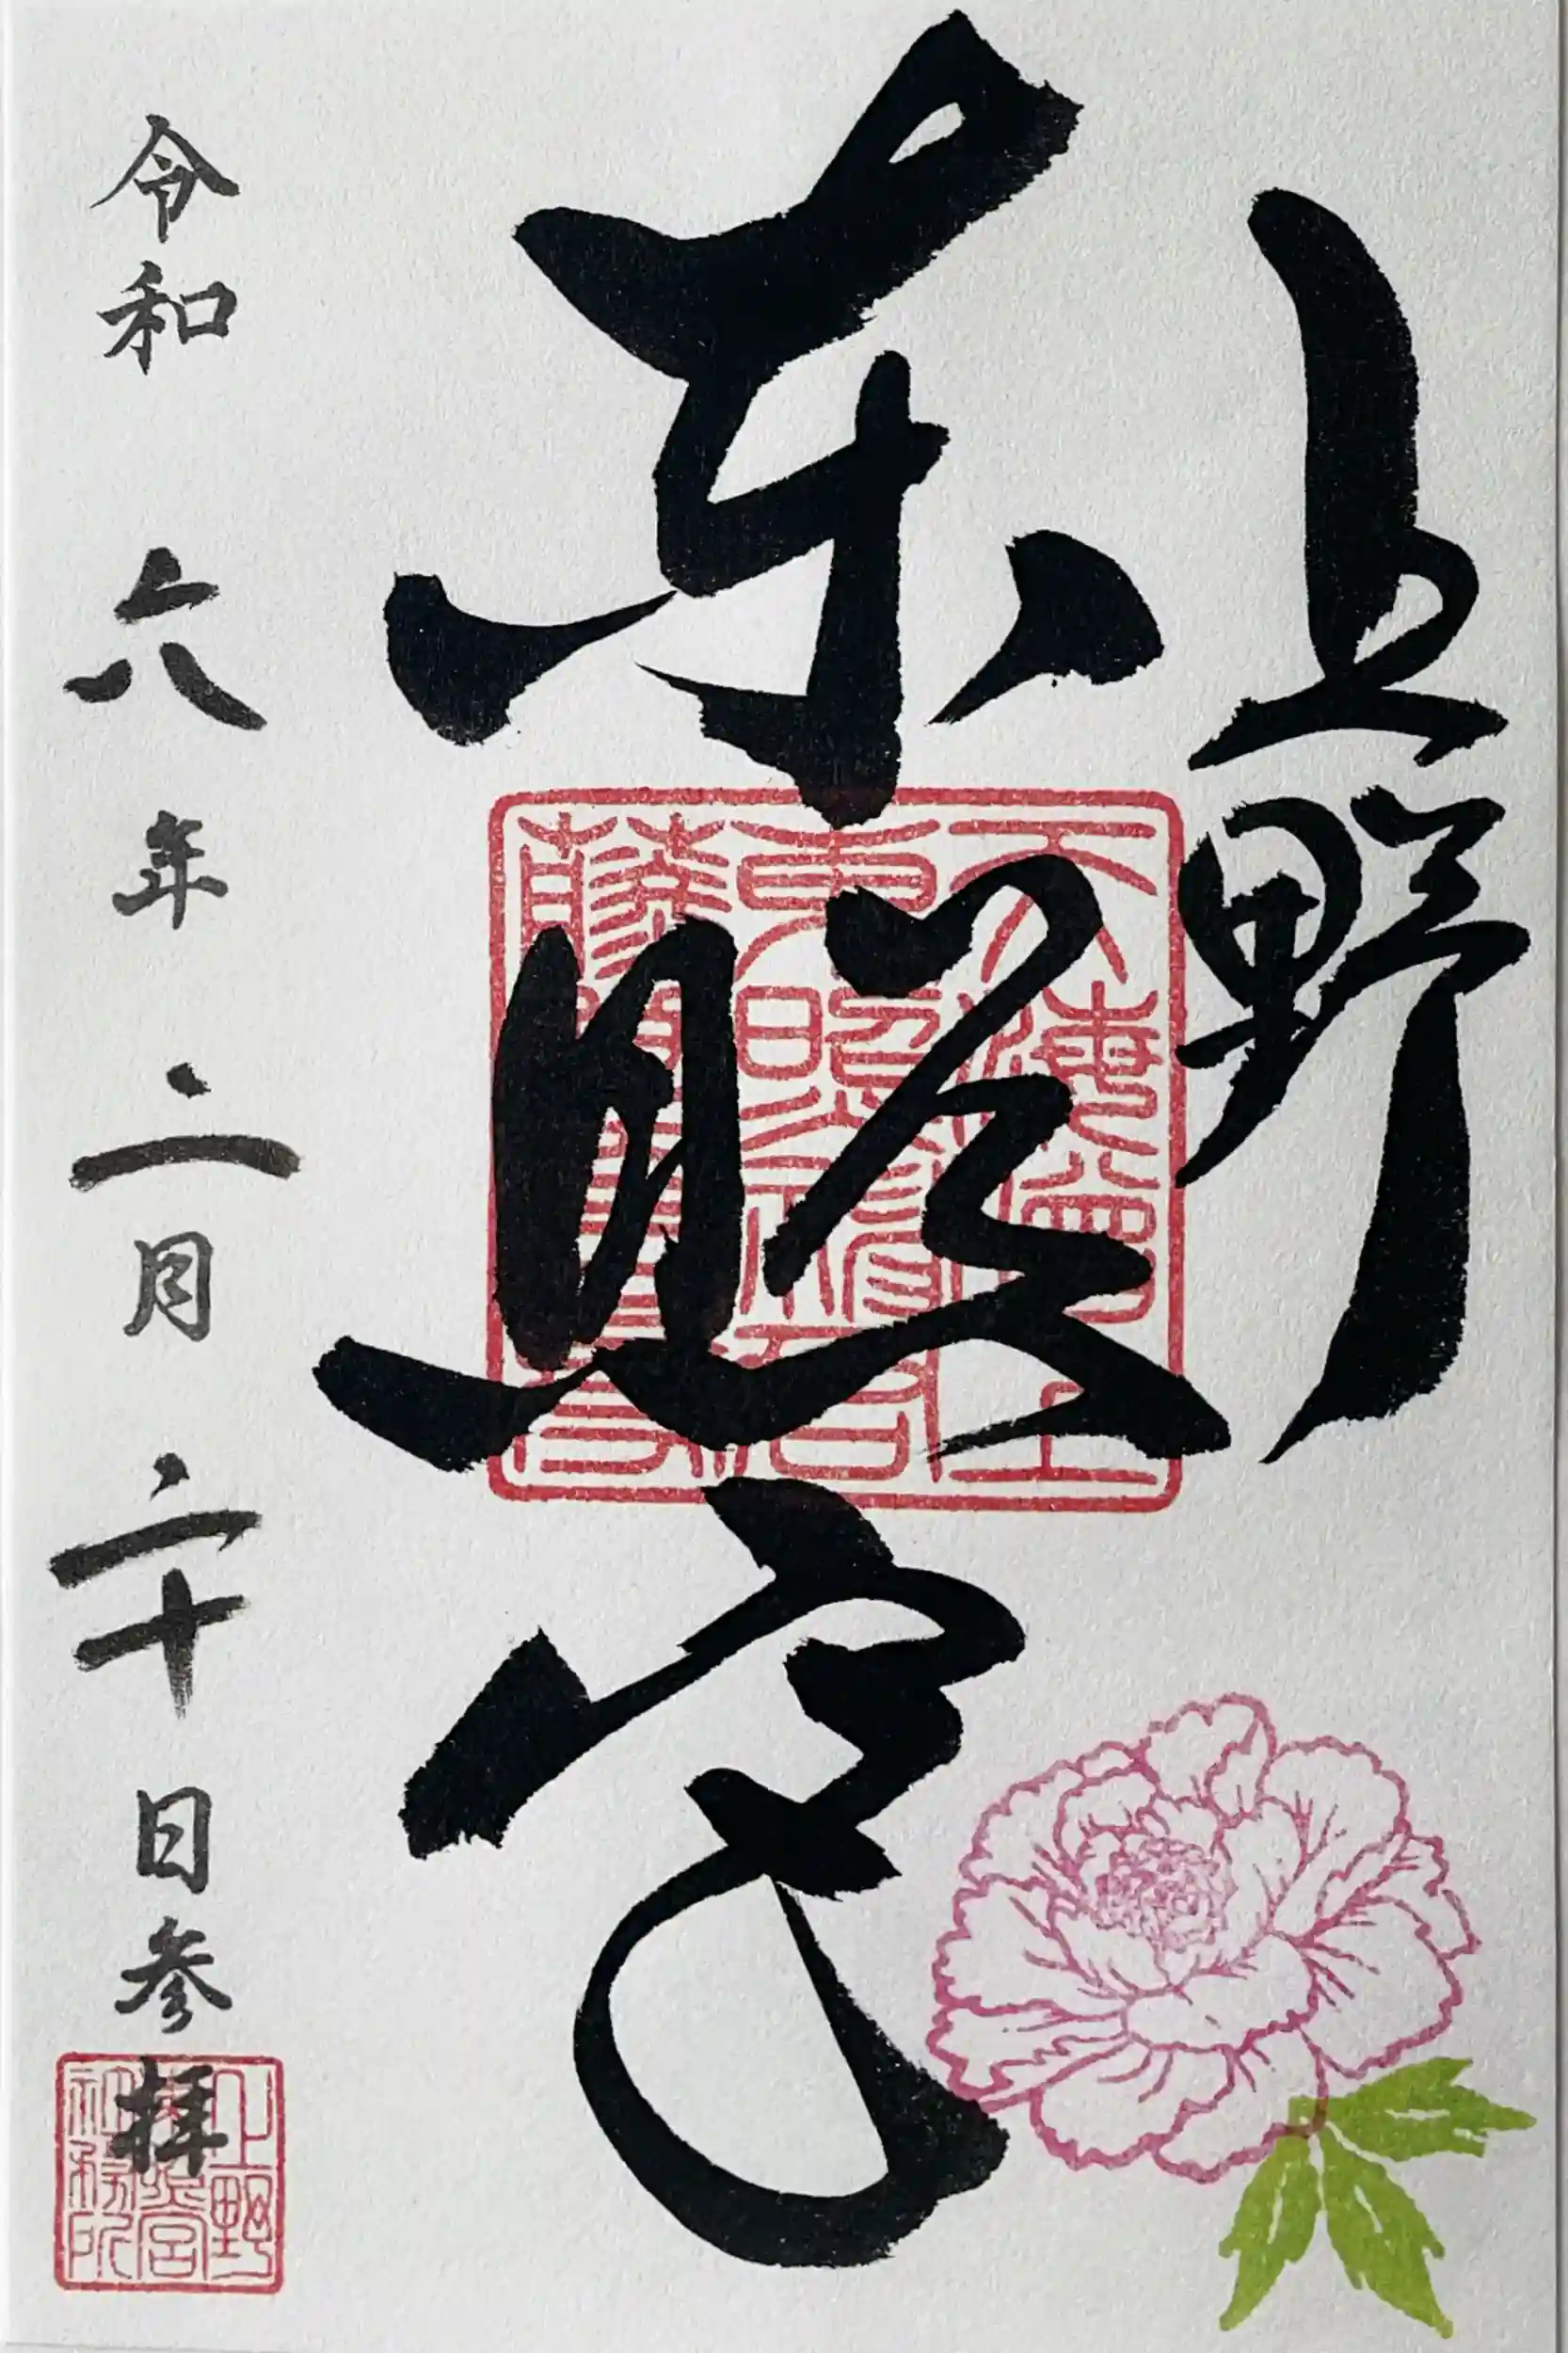 上野
東照宮
令和六年二月二十日参拝
上野
東照宮
社務所